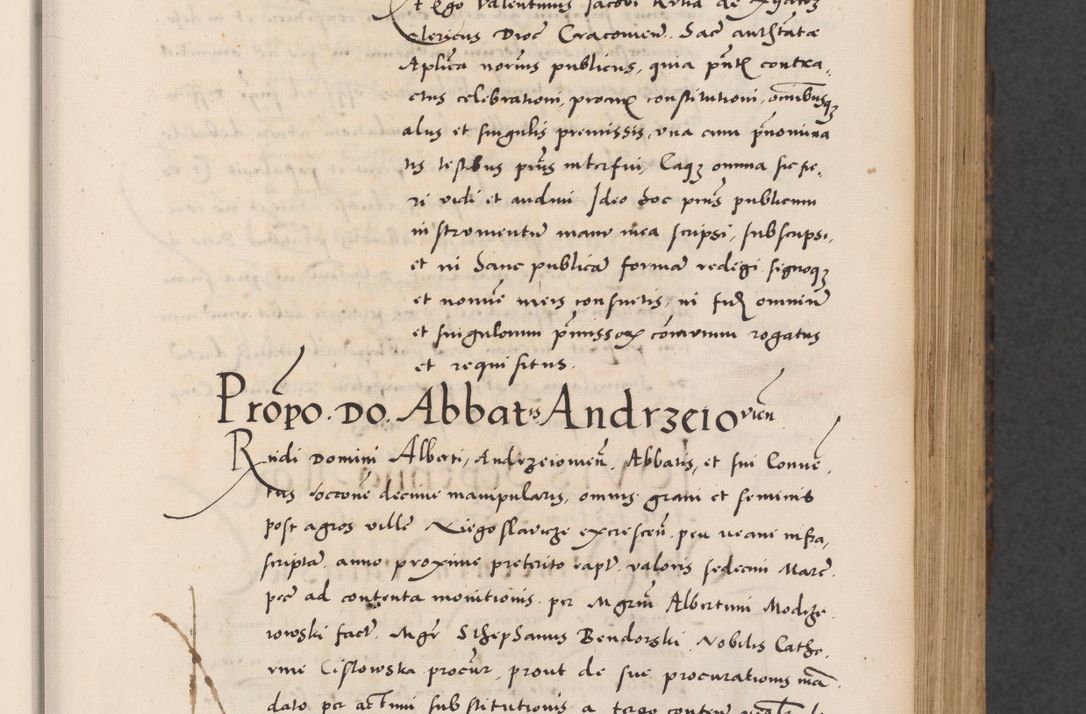 Et Ego Valentinus Jacobi
Clericus Dioc̄ Cracovien̄. Sac̄ authētate
Aplīca notriūs publicus, quia pn̄t contra,
ctus celebrationi, constitutioni, omībusq
aliis et singulis premissis, vna cum pn̄omina
tis testibus pn̄s interfui, Eaq omnia sic fie,
ri vidi et audiui Ideo hoc pn̄s publicum
in strumentū manu mea scripsi, subscripsi,
et in hanc publicā formā redegi signoq
et nomīe meis consuetis, in fidē omniū
et singulorum pm̄issor rogatus
et requisitus.
Pro͞po. DO. Abbatis Andrzeiovien̄
Rndi Domini Alberti, Andrzeiouien̄. Abbatis, et sui Conuē,
tus decime manipularis, omnis grani et seminis
post agros ville excrescen̄ infra,
scriptā anno proxime preterito rapt. valoris sedecim Marc̄.
ad contenta monitionis per Mgrm̄ Albertum
fact. Mgr̄ Sthephanus Bendorski. Nobilis Cathe,
rine Cislowska procur̄, prout de sue procurationis mā
dato per substitutionis a tergo